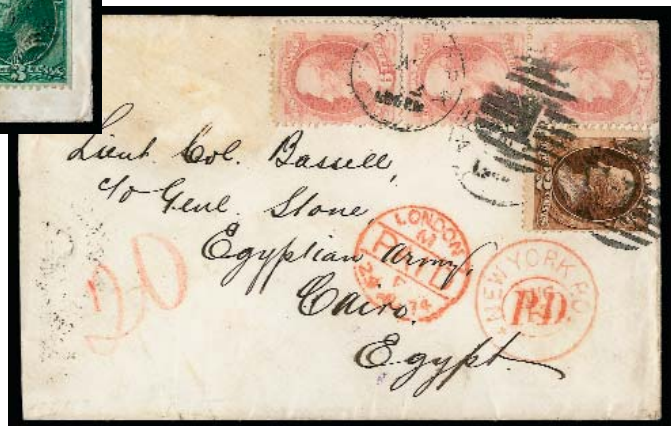 Lieut. Col. Bassell,
c/o Genl. Stone,
Egyptian Army,
Cairo.
Egypt.
20
LONDON
M
PAID
74
NEW YORK
P.D.